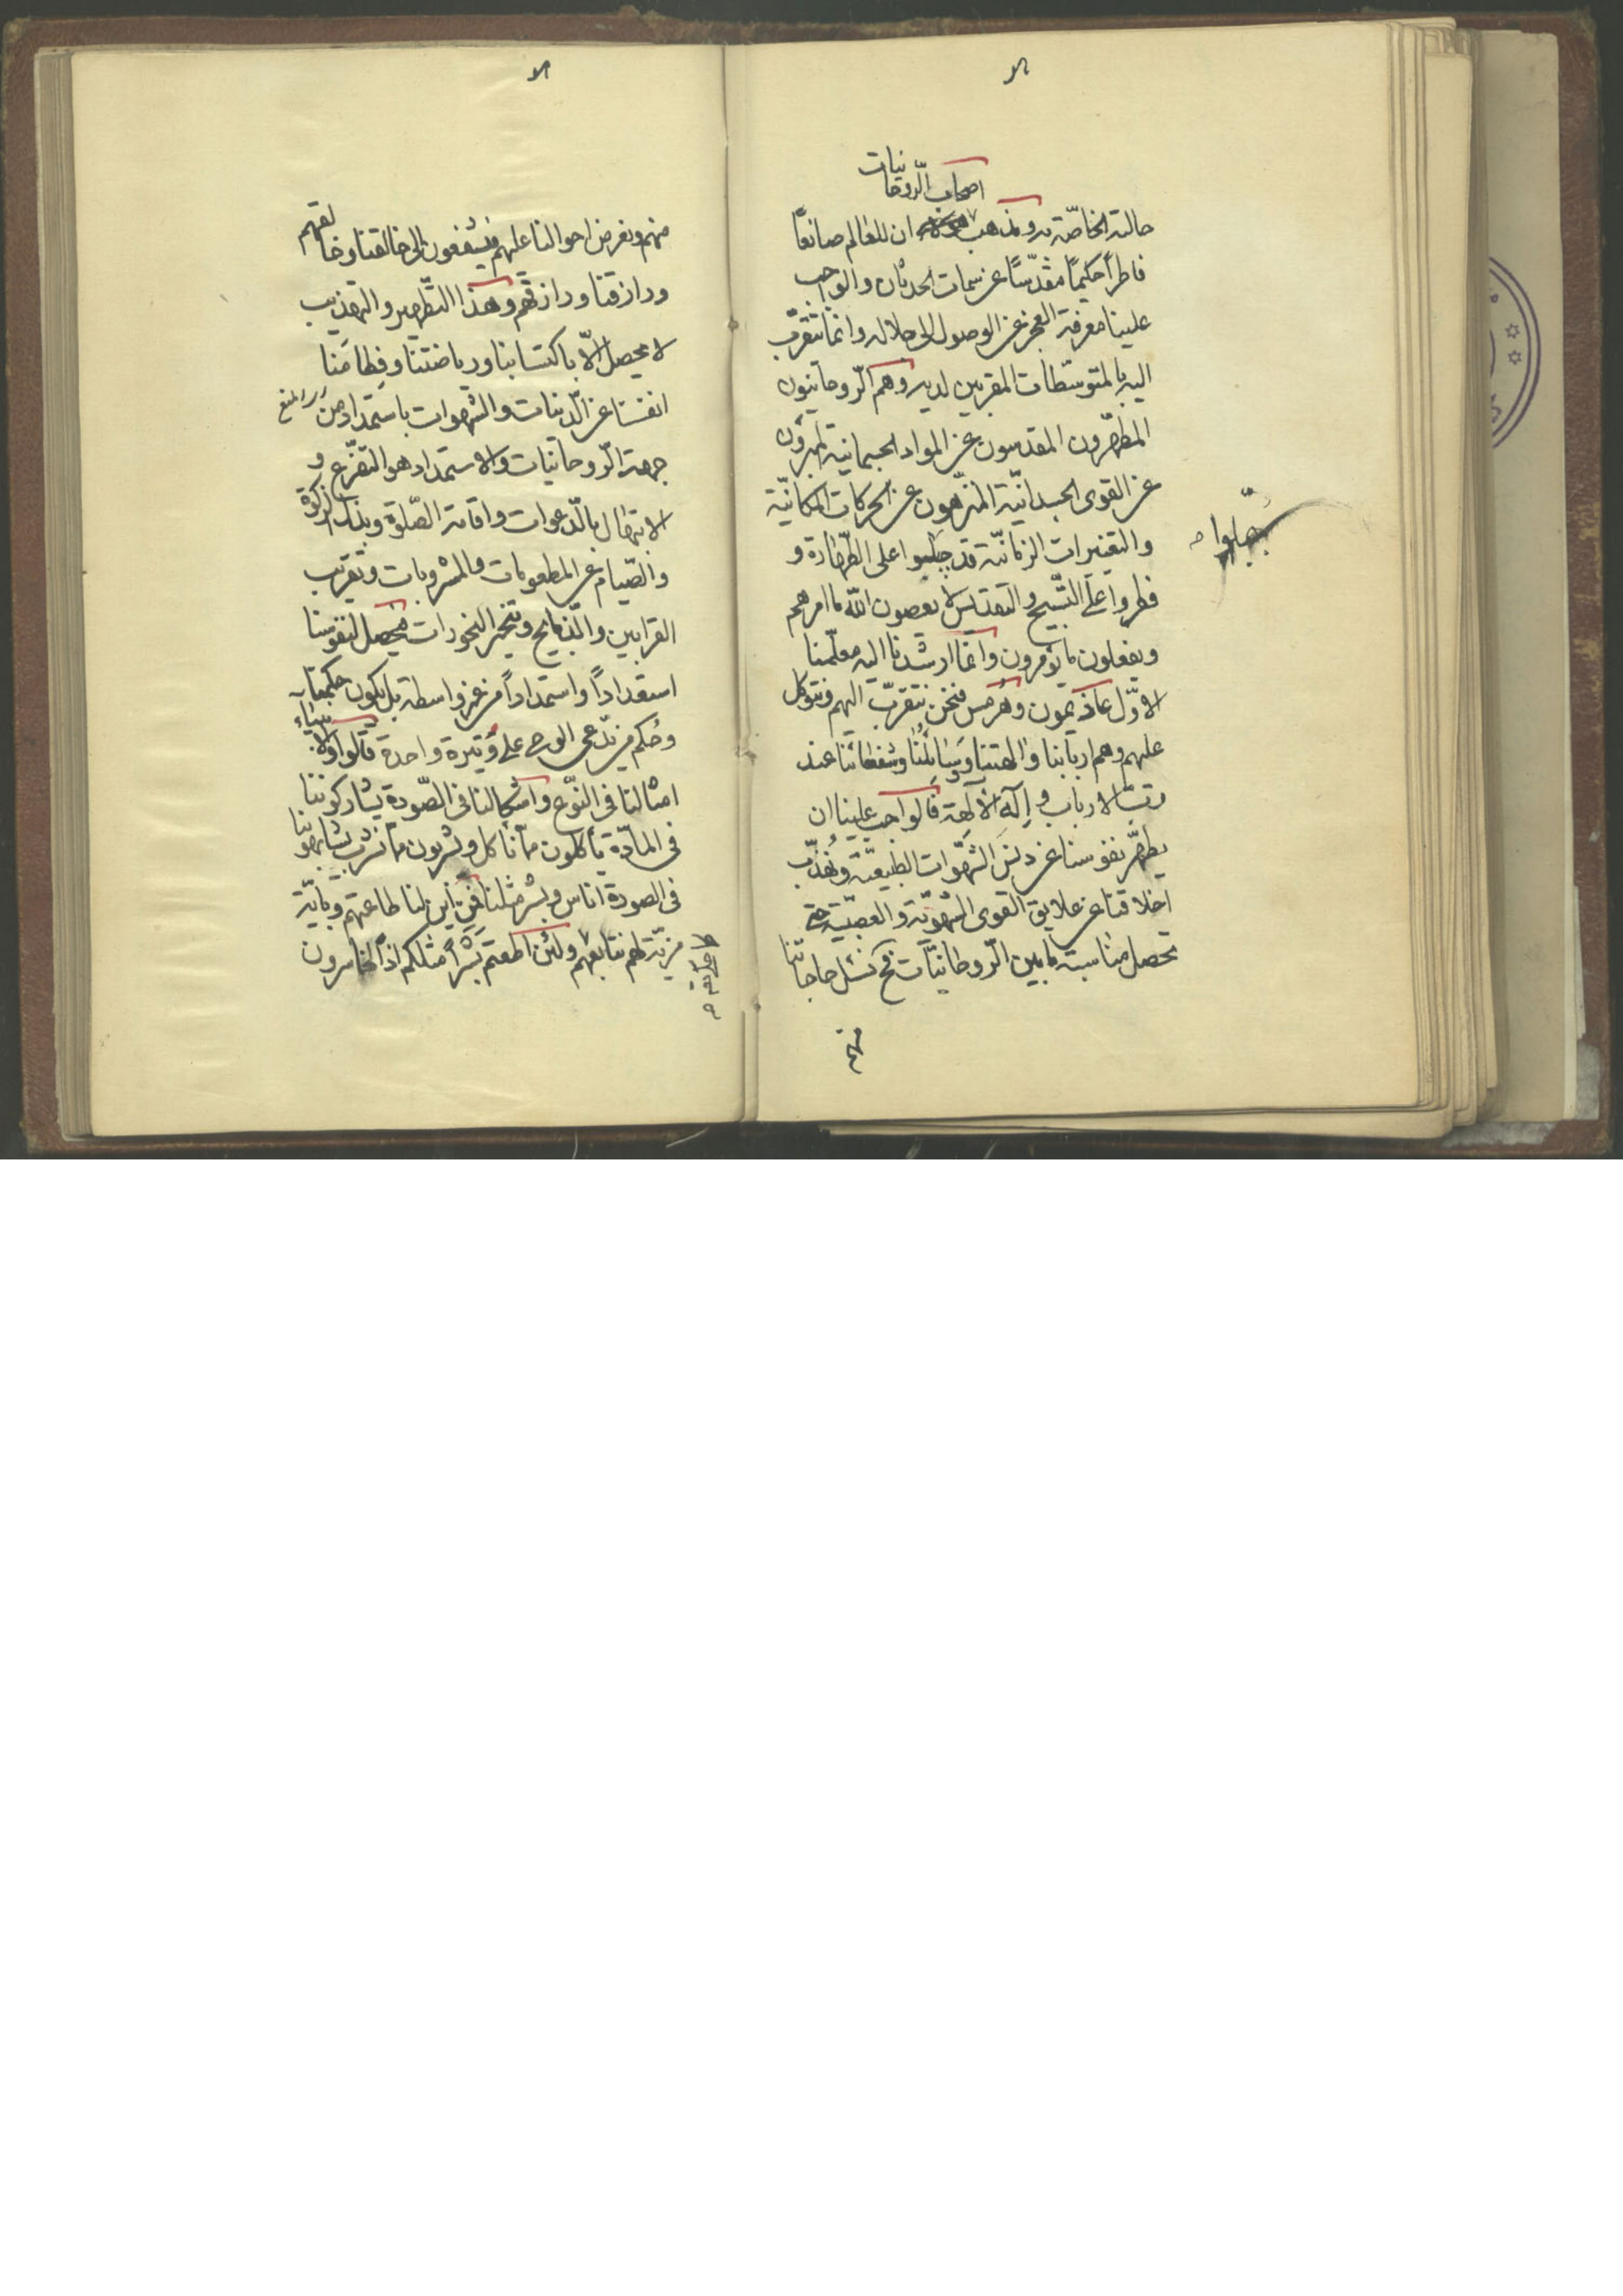 اصحاب الروحانيات
حالته الخاصّة به ومذهب ان للعالم صانعاً
فاطراً حكيماً مقدّساً عن سمات الحدثان والواجب
علينا معرفة العجز عن الوصول الى جلاله وانّما نتقرّب
اليه بالمتوسّطات المقربين لديه وهم الرّوحانيّون
المطهّرون المقدسون عن المواد الجسمانية المبرؤن
عن القوى الجسدانيّة المنزّهون عن الحركات المكانيّة
والتغيرات الزمانيّة قد جبلوا على الطّهارة و
جبلوا
فطروا على التّسبيح والتقديس لا يعصون الله ما امرهم
ويفعلون ما يؤمرون وانّما ارشدنا اليه معلّمنا
الاوّل عاذيمون وهرمس فنحن نتقرّب اليهم ونتوكل
عليهم وهم اربابنا والهتنا وسائلنا وشفعائنا عند
ربّ الارباب و إله الآلهة فالواجب علينا ان
يطهّر نفوسنا عن دنس الشّهوات الطبيعيّة ونهذّب
اخلاقنا عن علايق القوى الشهويّة والغضبيّة حتى
تحصل مناسبة ما بين الرّوحانيّات فح نسئل حاجاتنا
منهم
منهم ونعرض احوالنا عليهم فيشفعون الى خالقنا وخالقهم
ورازقنا ورازقهم وهذا التّطهير والتهذيب
لا يحصل الّا باكتسابنا ورياضتنا وفطامنا
انفسنا عن الدّنيات والشهوات باستمداد من
جهة الرّوحانيّات والاستمداد هو التضرّع و
الابتهال بالدّعوات واقامة الصّلوة وبذل الزكوة
والصّيام عن المطعومات والمشروبات وتقريب
القرابين والذبايح وتبخير البخورات فيحصل لنفوسنا
استعداداً واستمداداً من غير واسطة بل يكون حكمنا
وحُكم من يدّعى الوحى على وتيرة واحدة قالوا والانبياء
امثالنا فى النوّع واشكالنا فى الصّورة يشاركوننا
فى المادّة يأكلون ممّا نأكل ويشربون ممّا نشرب يشابهوننا
فى الصورة اناس وبشر مثلنا فمن اين لنا طاعتهم وبايّة
مزيّة لهم نتابعهم ولئن اطعتم بشراً مثلكم اذاً لخاسرون